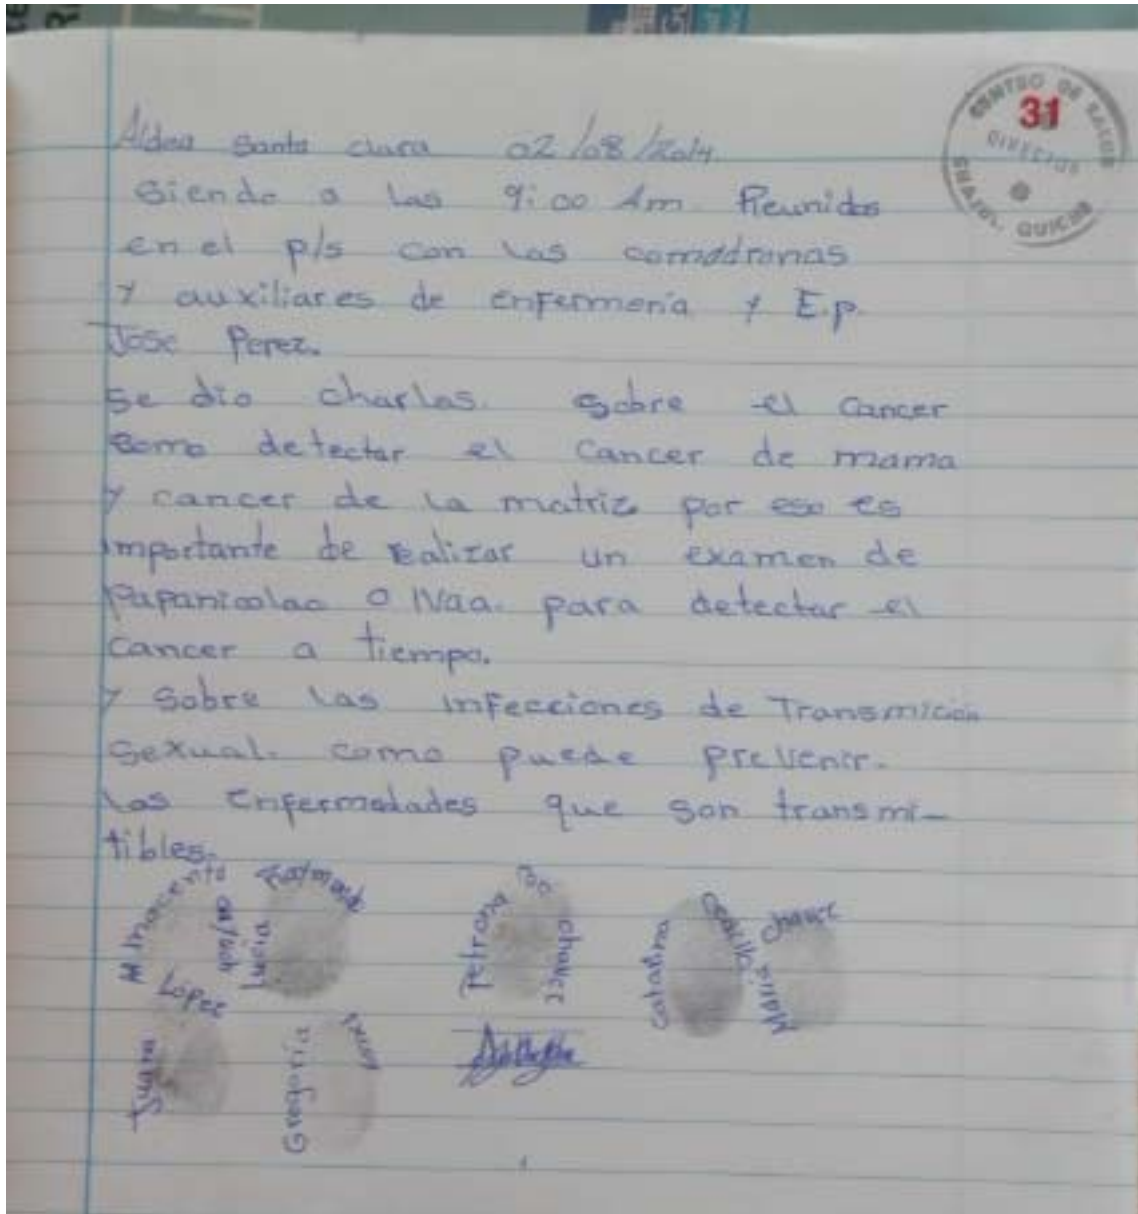 31
CENTRO DE SALUD
DIRECCION
CHAJUL, QUICHE
Aldea Santa Clara 02/08/2014.
Siendo a las 9:00 Am. Reunidos
en el p/s con las comadronas
Y auxiliares de enfermeria y E.p.
Jose Perez.
se dio charlas. sobre el cancer
como detectar el cancer de mama
y cancer de la matriz por eso es
importante de realizar un examen de
Papanicolao o IVaa. para detectar el
cancer a tiempo.
Y sobre las infecciones de Transmicion
sexual. como puede prevenir.
las enfermedades que son transmi-
tibles.
M Inocento
Lucia Raymundo
Petrona
Catarina
Maria Chavez
Juana Lopez
Gregoria